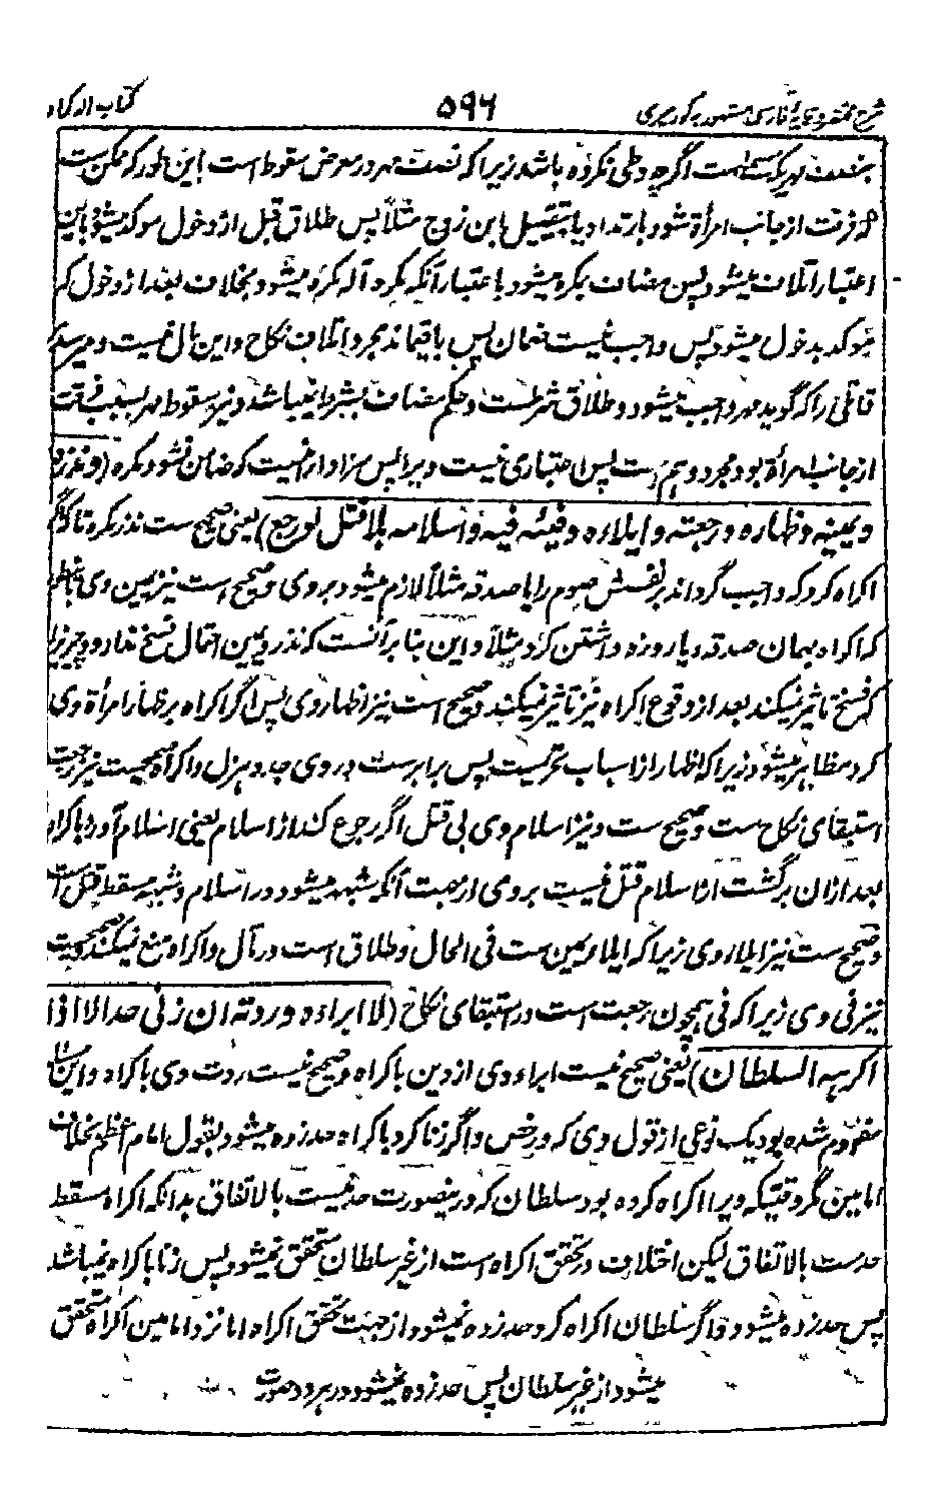 شرح مختصر وقایه فارسی مشهور بکور میری ۵۹۶ کتاب الاکراه
بنصف مهر یکه مسمی است اگر چه وطی نکرده باشد زیرا که نصف مهر در معرض سقوط است باین طور که ممکن ست
که فرقت از جانب امرأة شود بارتداد یا بتقبیل ابن زوج مثلاً پس طلاق قبل از دخول موکد میشود باین
اعتبار اتلاف میشود پس مضاف بمکره میشود باعتبار آنکه مکره آله مکره میشود بخلاف بعد از دخول که
موکد بدخول میشود پس واجب نیست ضمان پس باقیماند مجرد اتلاف نکاح و این مال نیست و میرسد
قائلی را که گوید مهر واجب میشود و طلاق شرطست و حکم مضاف بشرط نمیباشد و نیز سقوط مهر بسبب فرقت
از جانب امرأة بود مجرد وهم است پس اعتباری نیست ویرا پس سزاوار نیست که ضامن نشود مکره (ونذره
ویمینه وظهاره ورجعته وایلاءه وفیئه فیه واسلامه بلا قتل لو رجع) یعنی صحیح ست نذر مکره تا که اگر
اکراه کرد که واجب گرداند بر نفسش صوم را یا صدقه مثلاً لازم میشود بر وی و صحیح است نیز یمین وی
که اکراه بهمان صدقه و یا روزه داشتن کرد مثلاً و این بنا بر آنست که نذر و یمین احتمال فسخ ندارد و چیزیرا
که فسخ تاثیر نمیکند بعد از وقوع اکراه نیز تاثیر نمیکند و صحیح است نیز اظهار وی پس اگر اکراه بر ظهار امرأة وی
کرد مظاهر میشود زیرا که اظهار از اسباب تحریمست پس برابرست در وی جد و هزل و اکراه و صحیح ست نیز رجعت
استبقای نکاح ست و صحیح ست و نیز اسلام وی بی قتل اگر رجوع کند از اسلام یعنی اسلام آورد باکراه
بعد از ان برگشت از اسلام قتل نیست بر وی از جهت آنکه شبهه میشود در اسلام و شبهه مسقط قتل است
و صحیح ست نیز ایلاء وی زیرا که ایلا یمین ست فی الحال و طلاق است در مآل و اکراه منع نمیکند و صحیح ست
نیز فی وی زیرا که فی همچون رجعت است در استبقای نکاح (لا ابراءه وردته ان زنی حد الا اذا
اکرهه السلطان) یعنی صحیح نیست ابراء وی از دین باکراه و صحیح نیست ردت وی باکراه و این
مفهوم شده بود یک نوعی از قول وی که ورخص و اگر زنا کرد باکراه حد زده میشود بقول امام اعظم بخلاف
امامین مگر وقتیکه ویرا اکراه کرده بود سلطان که درینصورت حد نیست بالاتفاق بدانکه اکراه مسقط
حدست بالاتفاق لیکن اختلاف در تحقق اکراه است از غیر سلطان متحقق نمیشود پس زنا باکراه نمیباشد
پس حد زده میشود و اگر سلطان اکراه کرد حد زده نمیشود از جهت تحقق اکراه اما نزد امامین اکراه متحقق
میشود از غیر سلطان پس حد زده نمیشود در هر دو صورت